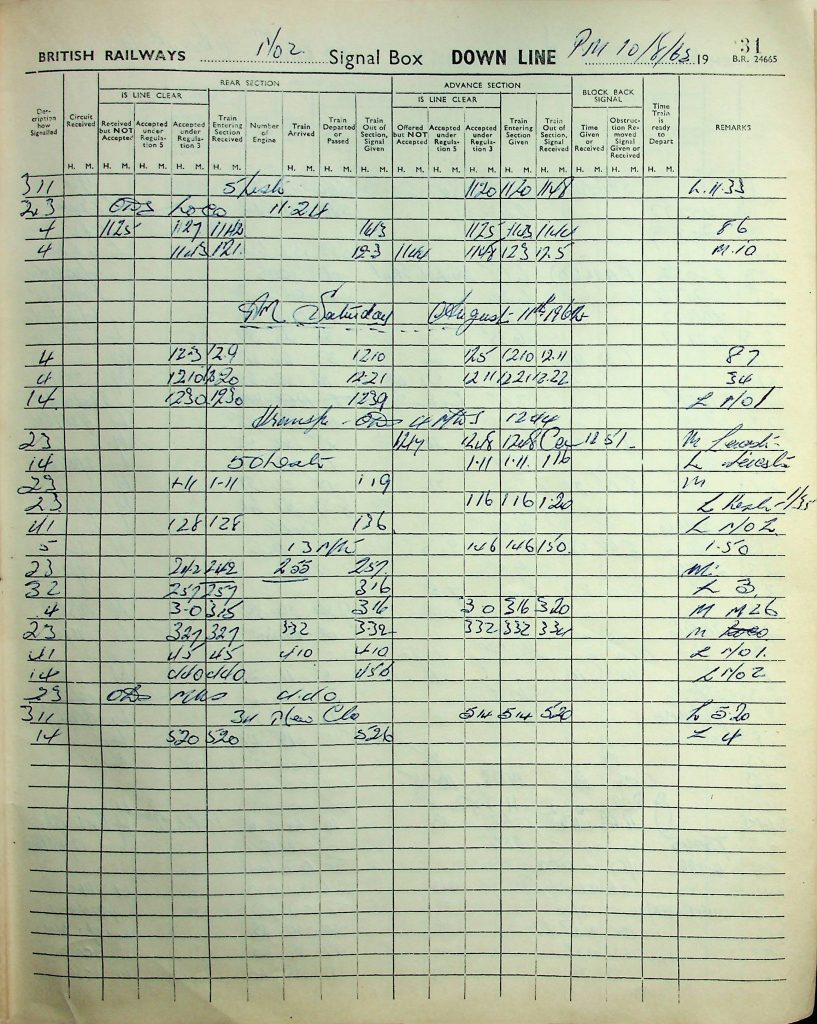 BRITISH RAILWAYS No 2. Signal Box DOWN LINE PM 10/8/63 19 31
B.R. 24665
REAR SECTION ADVANCE SECTION BLOCK BACK SIGNAL
IS LINE CLEAR IS LINE CLEAR
Description how Signalled Circuit Received Received but NOT Accepted Accepted under Regulation 5 Accepted under Regulation 3 Train Entering Section Received Number of Engine Train Arrived Train Departed or Passed Train Out of Section, Signal Given Offered but NOT Accepted Accepted under Regulation 5 Accepted under Regulation 3 Train Entering Section Given Train Out of Section, Signal Received Time Given or Received Obstruction Removed Signal Given or Received Time Train is ready to Depart REMARKS
H. M. H. M. H. M. H. M. H. M. H. M. H. M. H. M. H. M. H. M. H. M. H. M. H. M. H. M. H. M. H. M.
311 5 1120 1120 1148 L. 11.33
2.3 Loco 11.24
4 1125 1127 1142 1143 1125 1143 1144 86
4 1143 121. 12.3 1144 1148 123 12.5 M.10
AM Saturday August 11th 196
4 12.3 12.9 1210 125 1210 12.11 87
4 1210 1220 12.21 1211 1221 12.22 34
14 1230 1230 1239 L No 1
1244
23 1247 1248 1248 Can 1251. M
14 50 1.11 1.11. 116 L
23 1.11 1.11 119 M
23 116 116 1.20 L
41 128 128 136 L No 2.
5 13 146 146 150. 1.50
23 242 242 255 257. M.
32 257 257 316 L 3.
4 3.0 315 316 30 316 320 M M26
23 327 327 332 332 332 332 334 M Loco.
41 45 45 410 410 L No 1.
14 440 440 450 L No 2.
23 4.40
311 34 New 514 514 520 L 5.20
14 520 520 526 L 4